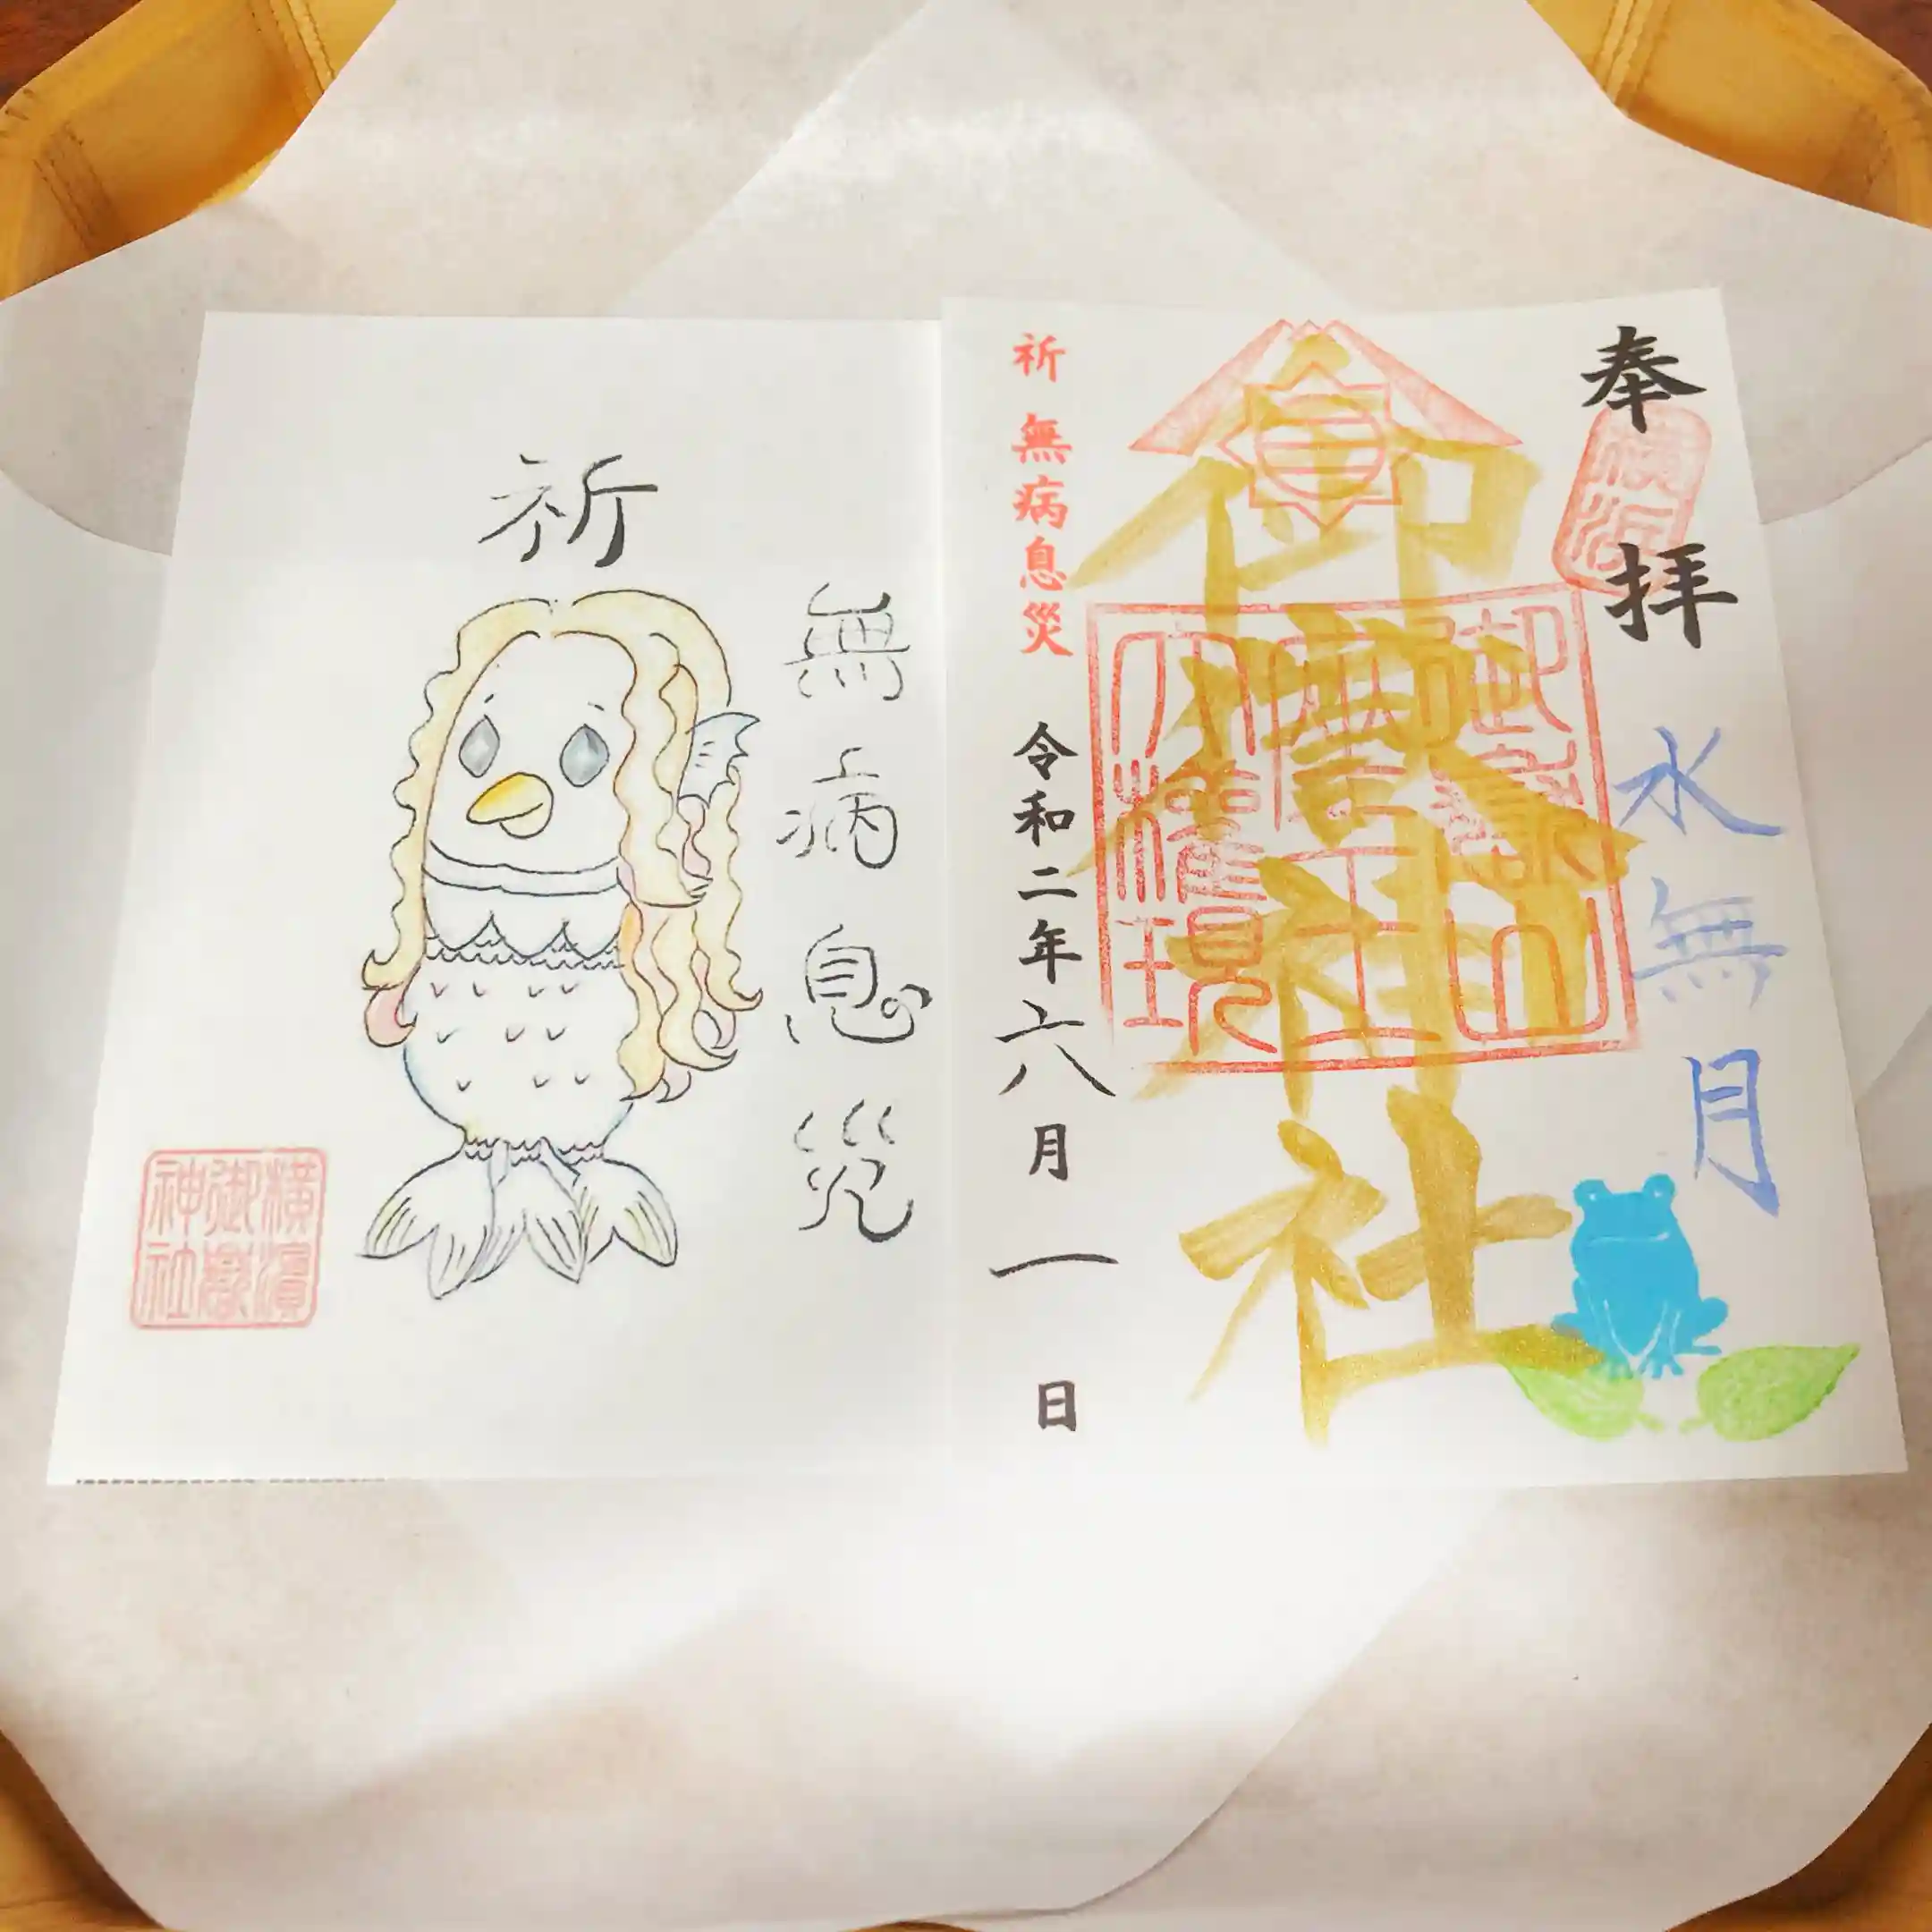 奉拝
横浜
水無月
御嶽神社
御嶽山
座王
大権現
祈 無病息災
令和二年六月一日
祈
無病息災
横濱
御嶽
神社